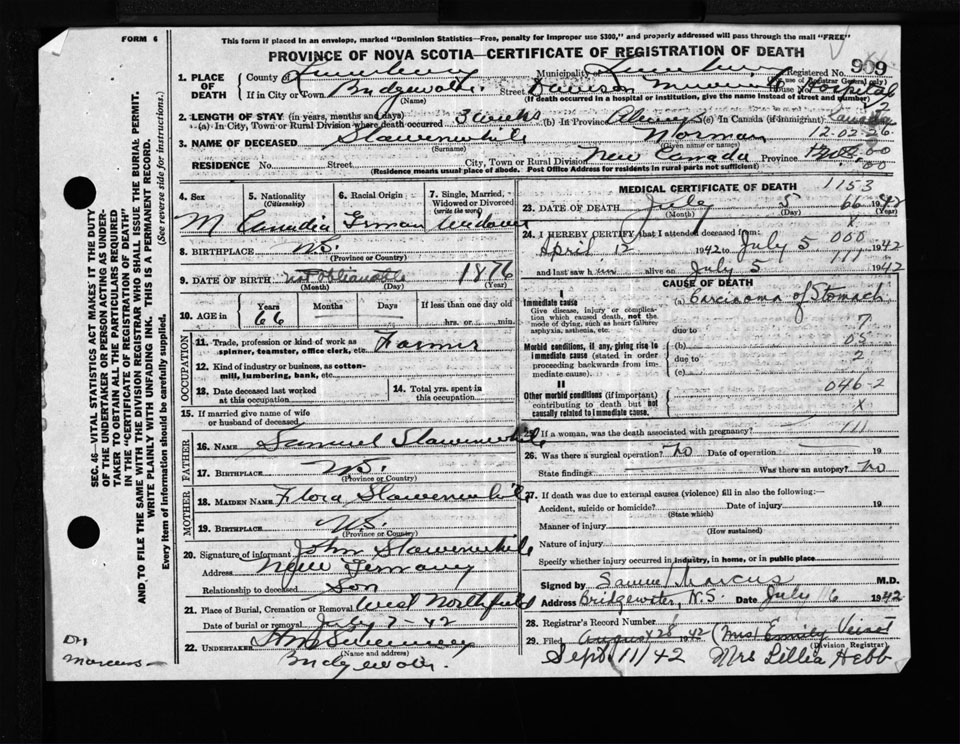 FORM 6
This form if placed in an envelope, marked "Dominion Statistics—Free, penalty for improper use $300," and properly addressed will pass through the mail "FREE"
PROVINCE OF NOVA SCOTIA—CERTIFICATE OF REGISTRATION OF DEATH
Registered No. 909
(Use of Registrar General only)
1. PLACE OF DEATH
County of Lunenburg Municipality of Lunenburg
If in City or Town Bridgewater Street Dawson Memorial Hospital House No.
(Name) (If death occurred in a hospital or institution, give the name instead of street and number)
2. LENGTH OF STAY (in years, months and days)
(a) In City, Town or Rural Division where death occurred 3 weeks (b) In Province Always (c) In Canada (if immigrant) Canada
3. NAME OF DECEASED Slawenwhite Norman 12-02-26
(Surname) (Given name or names)
RESIDENCE No. Street City, Town or Rural Division New Canada Province
(Residence means usual place of abode. Post Office Address for residents in rural parts not sufficient)
4. Sex 5. Nationality (Citizenship) 6. Racial Origin 7. Single, Married, Widowed or Divorced (write the word)
M Canadia German Widower
8. BIRTHPLACE N.S.
(Province or Country)
9. DATE OF BIRTH not obtianable 1876
(Month) (Day) (Year)
10. AGE in Years Months Days If less than one day old
66 hrs. or min.
OCCUPATION
11. Trade, profession or kind of work as spinner, teamster, office clerk, etc. Farmer
12. Kind of industry or business, as cotton-mill, lumbering, bank, etc.
13. Date deceased last worked at this occupation
14. Total yrs. spent in this occupation
15. If married give name of wife or husband of deceased
FATHER
16. NAME Samuel Slawenwhite
17. BIRTHPLACE N.S.
(Province or Country)
MOTHER
18. MAIDEN NAME Flora Slawenwhite
19. BIRTHPLACE N.S.
(Province or Country)
20. Signature of informant John Slawenwhite
Address New Germany
Relationship to deceased Son
21. Place of Burial, Cremation or Removal West Northfield
Date of burial or removal July 7-42
22. UNDERTAKER
(Name and address)
Bridgewater
MEDICAL CERTIFICATE OF DEATH 1153
23. DATE OF DEATH July 5 66 1942
(Month) (Day) (Year)
X
24. I HEREBY CERTIFY that I attended deceased from: 000
April 12 1942 to July 5 1942
111
and last saw him alive on July 5 1942
CAUSE OF DEATH
I
Immediate cause (a) Carcinoma of Stomach
Give disease, injury or complication which caused death, not the mode of dying, such as heart failure, asphyxia, asthenia, etc.
7
due to
03
Morbid conditions, if any, giving rise to immediate cause (stated in order proceeding backwards from immediate cause). (b)
due to 2
(c)
II
046-2
Other morbid conditions (if important) contributing to death but not causally related to immediate cause. X
25. If a woman, was the death associated with pregnancy? 111
26. Was there a surgical operation? no Date of operation 19
State findings Was there an autopsy? no
27. If death was due to external causes (violence) fill in also the following:—
Accident, suicide or homicide? Date of injury 19
(State which)
Manner of injury
(How sustained)
Nature of injury
Specify whether injury occurred in industry, in home, or in public place
Signed by Samuel Marcus M.D.
Address Bridgewater, N.S. Date July 6 1942
28. Registrar's Record Number
29. Filed August 28 1942 (Mrs) Emmily
(Division Registrar)
Sept 11/42 Mrs Lillia Hebb
SEC. 46—VITAL STATISTICS ACT MAKES IT THE DUTY
OF THE UNDERTAKER OR PERSON ACTING AS UNDER-
TAKER TO OBTAIN ALL THE PARTICULARS REQUIRED
IN THE "CERTIFICATE OF REGISTRATION OF DEATH"
AND TO FILE THE SAME WITH THE DIVISION REGISTRAR WHO SHALL ISSUE THE BURIAL PERMIT.
WRITE PLAINLY WITH UNFADING INK. THIS IS A PERMANENT RECORD.
Every item of information should be carefully supplied. (See reverse side for instructions.)
Marcus